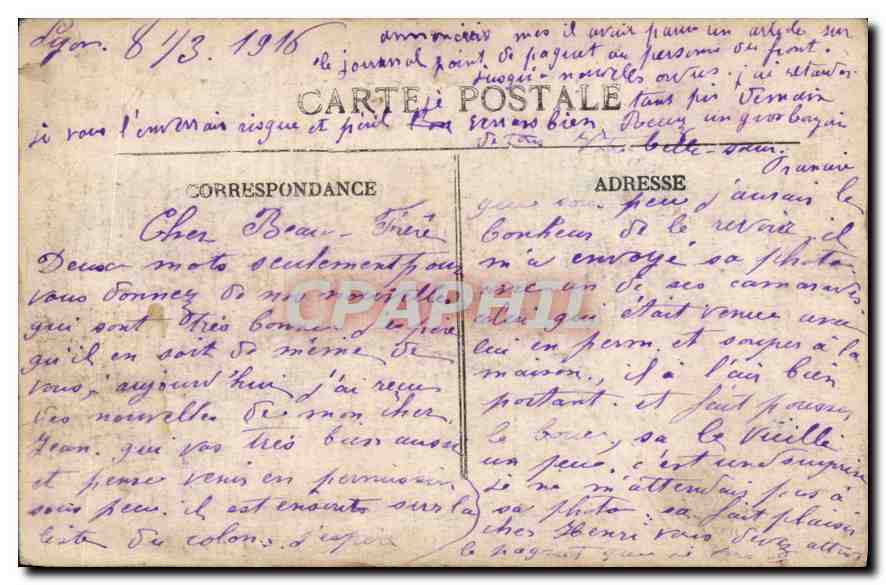 Lyon. 8 1/3. 1916
CARTE POSTALE
CORRESPONDANCE
Cher Beau-Frère
Deux mots seulement pour
vous donnez de mes nouvelles
qui sont très bonnes j'espère
qu'il en soit de même de
vous, aujourd'hui j'ai reçus
des nouvelles de mon cher
Jean. qui vas très bien aussi
et pense venir en permission
sous peu. il est inscrits sur la
liste du colon, j'espère
ADRESSE
que sous peu j'aurais le
bonheur de le revoir, il
m'a envoyé sa photo
avec un de ses camarades
celui qui était venue avec
lui en perm. et souper à la
maison, il à l'air bien
portant. et fait pousser
le bouc, sa le vieille
un peu, c'est une surprise
je ne m'attendais pas à
sa photo. sa fait plaisir
cher Henri vous devez attend
le paquet que je vous
annoncérés mes il avait parue un article sur
le journal point de paquet au personne du front.
jusqu'à nouvelles ordres. j'ai retardés
tans pis demain
je vous l'enverrais risque et péril
bien Recevez un gros baiser
de votre belle-sœur.
Francine
CPAPHIL